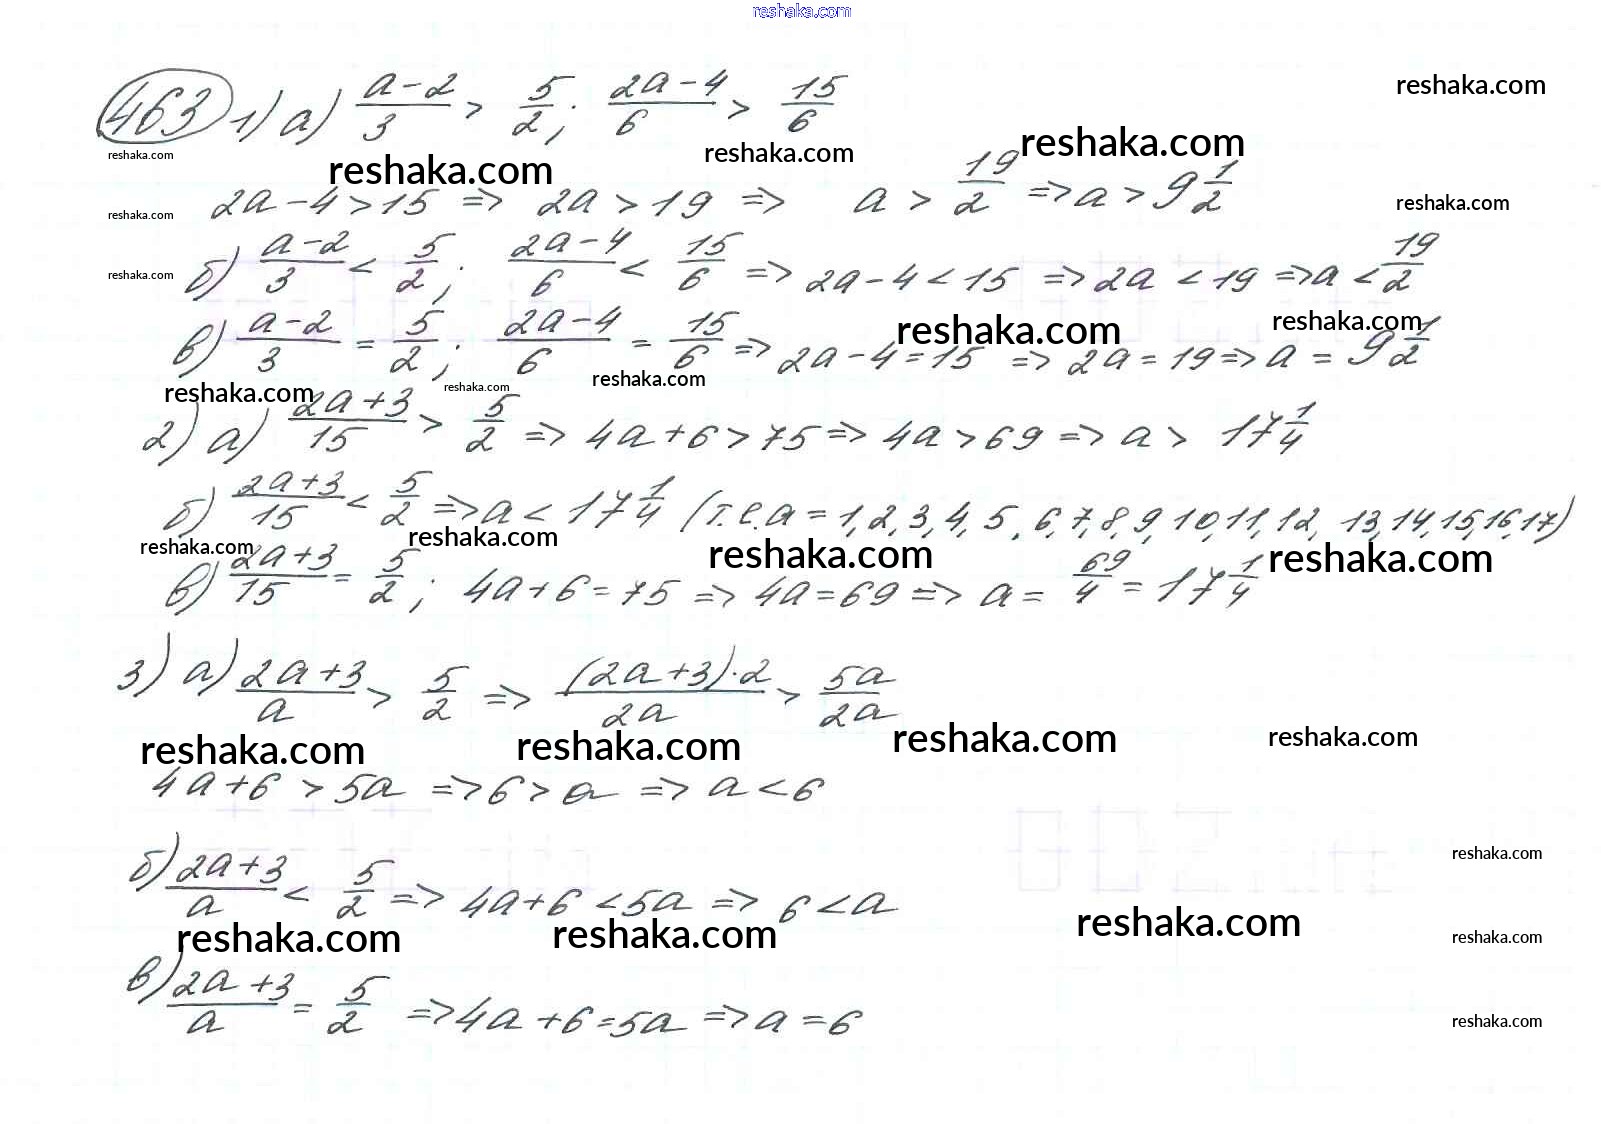 reshaka.com
463 1) а) (a-2)/3 > 5/2; (2a-4)/6 > 15/6 reshaka.com
reshaka.com reshaka.com reshaka.com reshaka.com
reshaka.com 2a-4>15 => 2a>19 => a > 19/2 => a > 9 1/2 reshaka.com
reshaka.com б) (a-2)/3 < 5/2; (2a-4)/6 < 15/6 => 2a-4<15 => 2a<19 => a < 19/2
в) (a-2)/3 = 5/2; (2a-4)/6 = 15/6 => 2a-4=15 => 2a=19 => a = 9 1/2 reshaka.com reshaka.com
reshaka.com reshaka.com reshaka.com
2) а) (2a+3)/15 > 5/2 => 4a+6>75 => 4a>69 => a > 17 1/4
б) (2a+3)/15 < 5/2 => a < 17 1/4 (т.е. a = 1, 2, 3, 4, 5, 6, 7, 8, 9, 10, 11, 12, 13, 14, 15, 16, 17)
reshaka.com reshaka.com reshaka.com reshaka.com
в) (2a+3)/15 = 5/2; 4a+6=75 => 4a=69 => a = 69/4 = 17 1/4
3) а) (2a+3)/a > 5/2 => (2a+3)·2/2a > 5a/2a
reshaka.com reshaka.com reshaka.com reshaka.com
4a+6 > 5a => 6 > a => a < 6
б) (2a+3)/a < 5/2 => 4a+6 < 5a => 6 < a reshaka.com
reshaka.com reshaka.com reshaka.com reshaka.com
в) (2a+3)/a = 5/2 => 4a+6=5a => a=6 reshaka.com